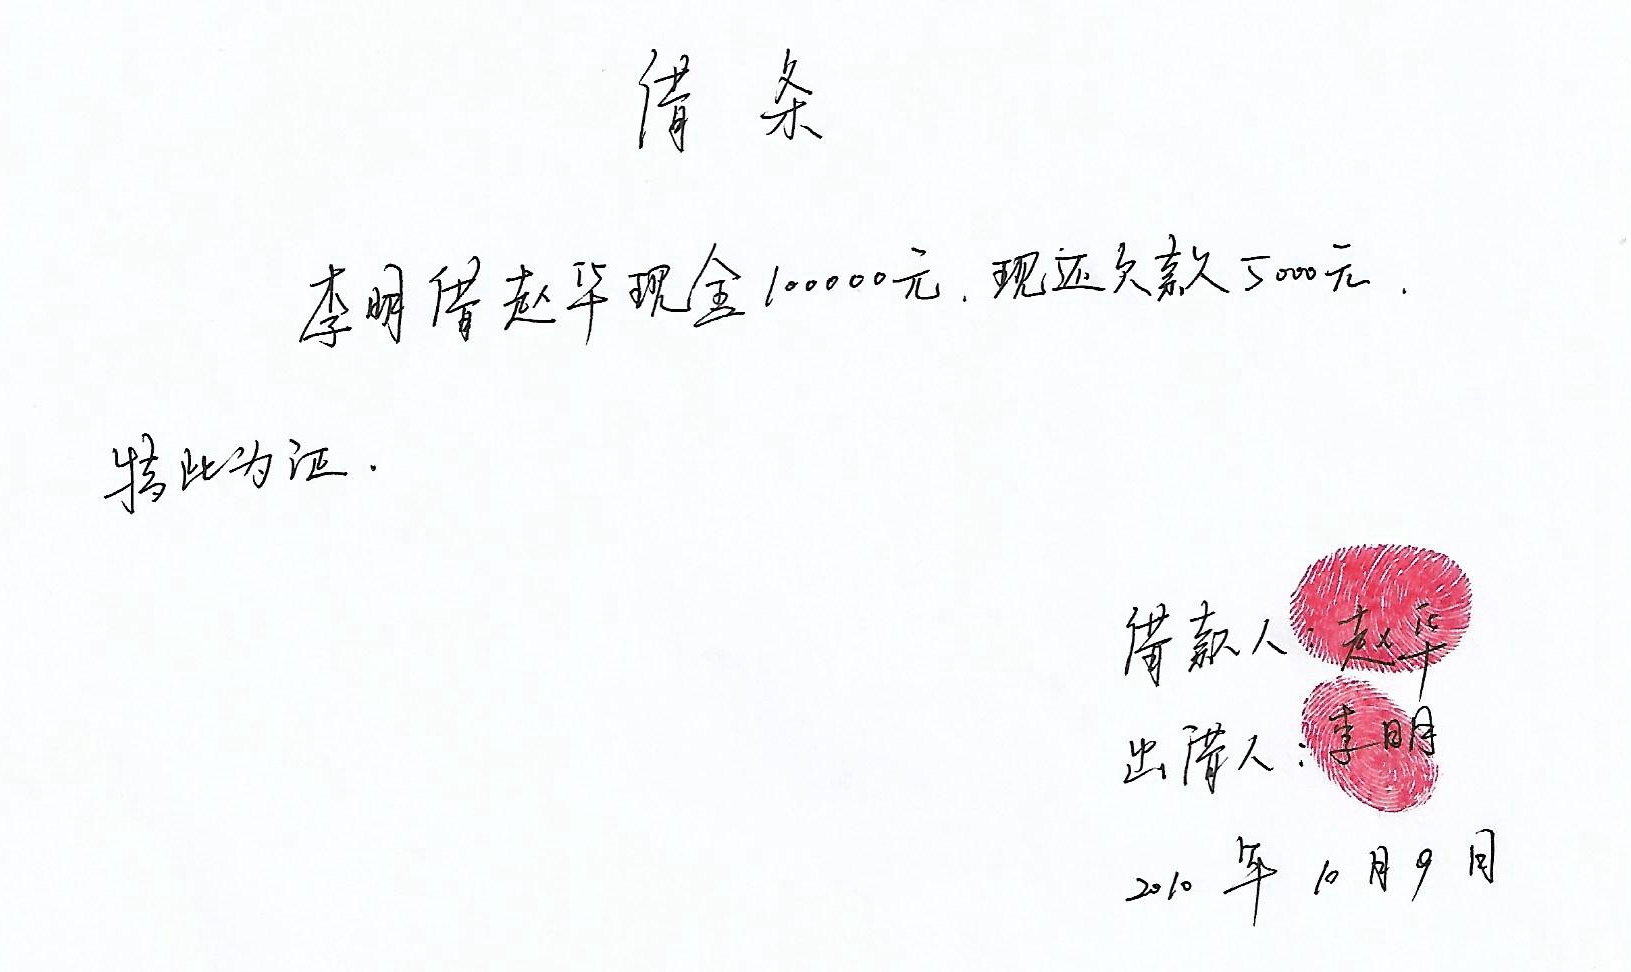 借条
李明借赵华现金100000元，现还欠款5000元．
特此为证．
借款人：赵华
出借人：李明
2010年10月9日